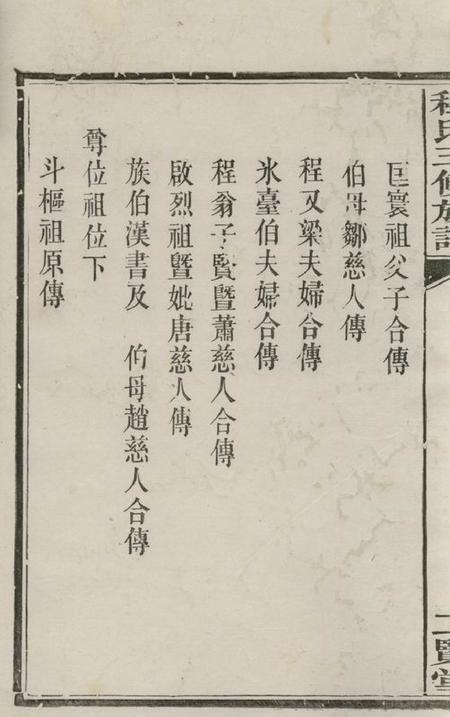 程氏三修族譜
二賢堂
匡寰祖父子合傳
伯母鄒慈人傳
程又梁夫婦合傳
氷臺伯夫婦合傳
程翁子賢暨蕭慈人合傳
啟烈祖暨妣唐慈人傳
族伯漢書及　伯母趙慈人合傳
尊位祖位下
斗樞祖原傳